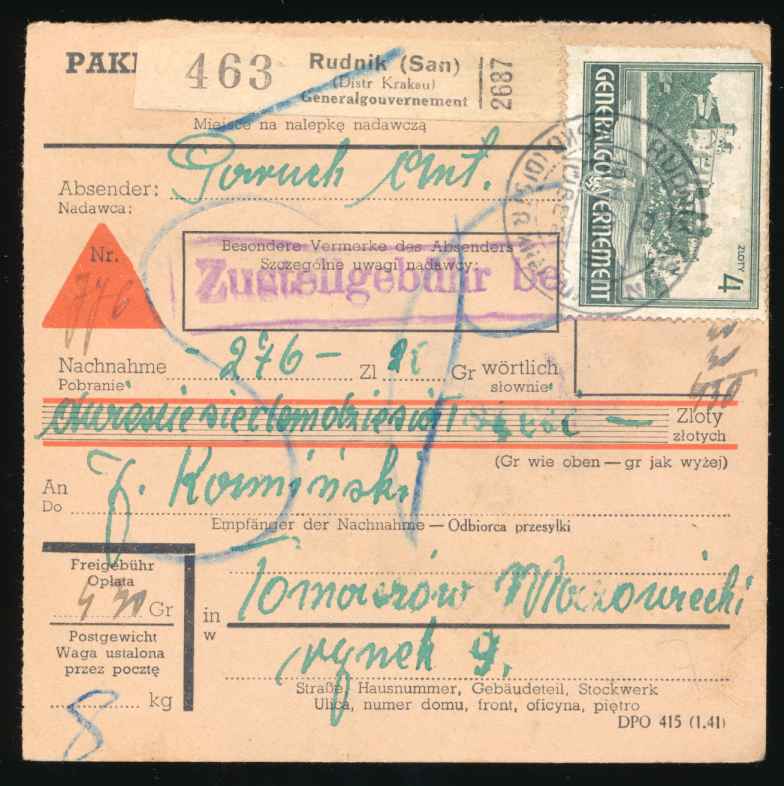 463
Rudnik (San)
(Distr Krakau)
Generalgouvernement
2687
Miejsce na nalepkę nadawczą
Absender:
Nadawca:
Nr.
776
Besondere Vermerke des Absenders
Szczególne uwagi nadawcy:
Zustellgebühr be
GENERALGOUVERNEMENT
4 ZŁOTY
RUDNIK
Nachnahme - 276 - Zl Gr wörtlich
Pobranie słownie
dwieście siedemdziesiąt Złoty
złotych
(Gr wie oben — gr jak wyżej)
An J. Kormiński
Do
Empfänger der Nachnahme — Odbiorca przesyłki
Freigebühr
Opłata
Gr
in Tomaszów Mazowiecki
w
Postgewicht
Waga ustalona
przez pocztę
8 kg
rynek 9,
Straße, Hausnummer, Gebäudeteil, Stockwerk
Ulica, numer domu, front, oficyna, piętro
DPO 415 (1.41)